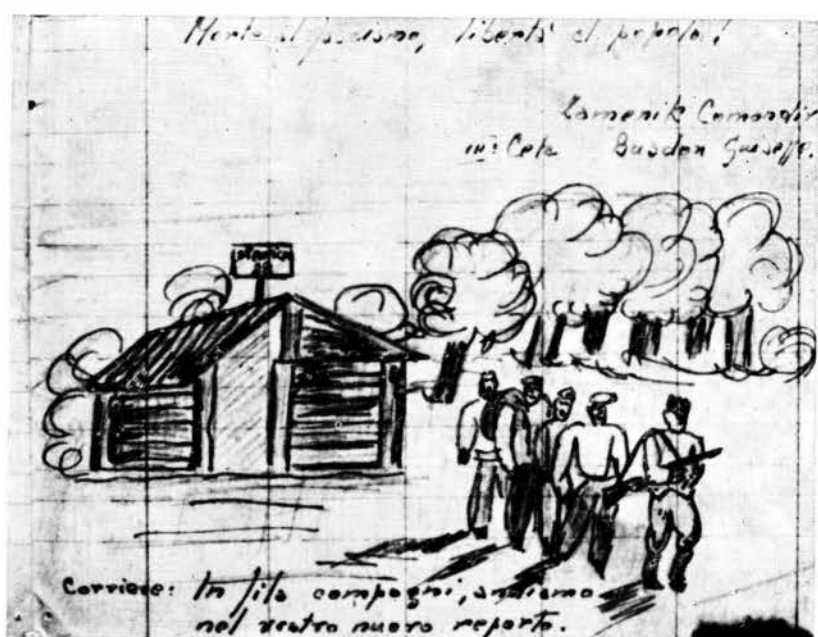 Morte al fascismo, libertà al popolo!
Zamenik Comandir
III: Ceta Busdon
Corriere: In fila compagni, andiamo
nel vostro nuovo reparto.